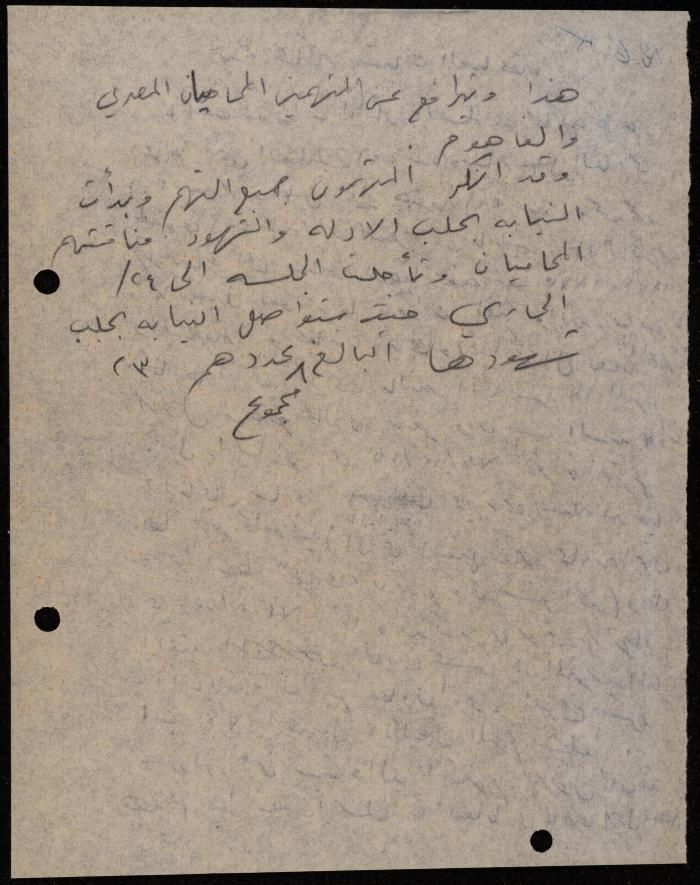 هذا ويترافع عن المتهمين المحاميان المصري
والفاهوم.
وقد انكر المتهمون جميع التهم وبدأت
النيابه بجلب الادله والشهود مناقشتهم
المحاميان وتأجلت الجلسه الى ٢٤/
الجاري حيث ستواصل النيابه بجلب
شهودها البالغ عددهم ٢٣
مجموع